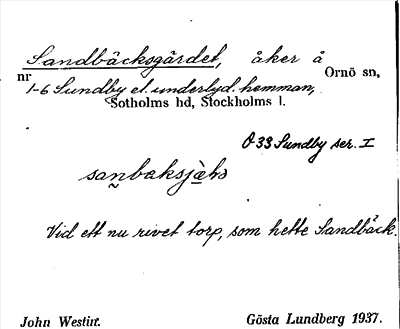 Sandbäcksgärdet, åker å
nr Ornö sn,
1-6 Sundby el. underlyd. hemman,
Sotholms hd, Stockholms l.
Ö 33 Sundby ser. I
Vid ett nu rivet torp, som hette Sandbäck.
John Westin. Gösta Lundberg 1937.